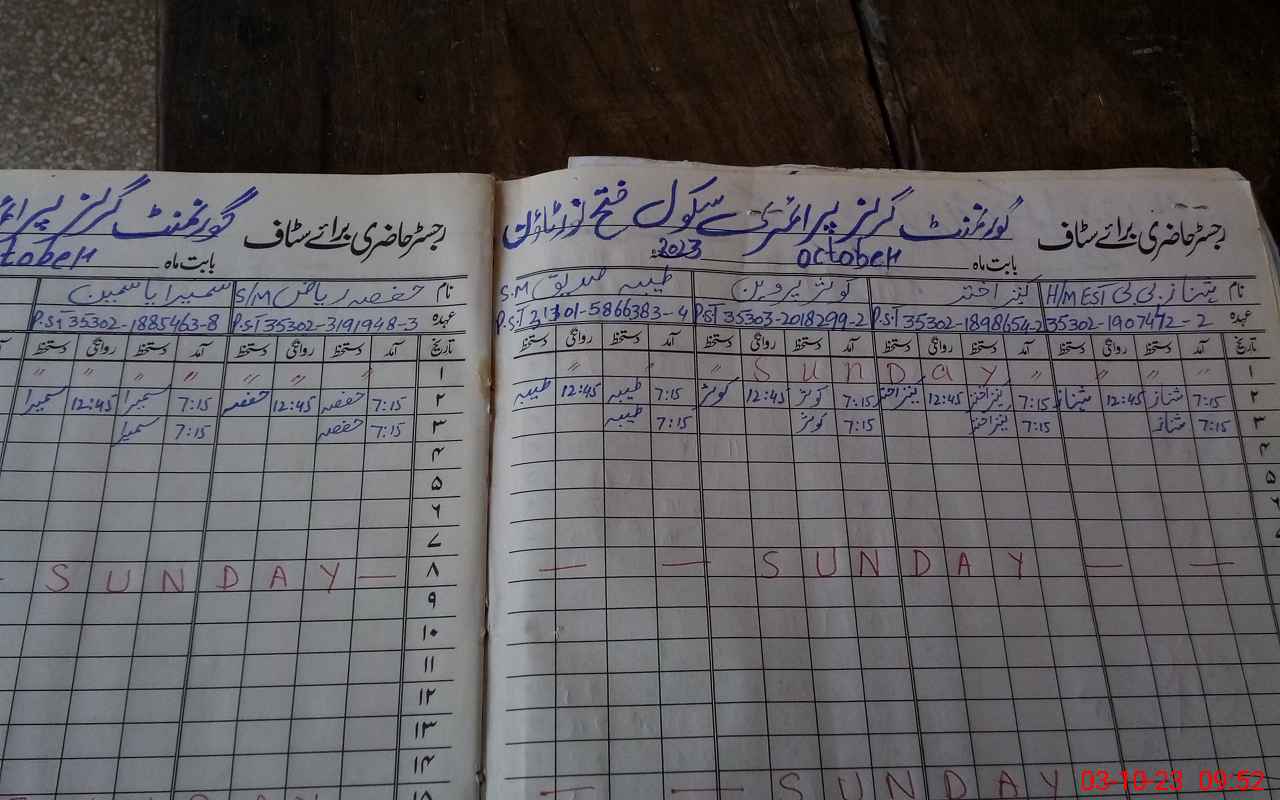 رجسٹر حاضری برائے سٹاف گورنمنٹ گرلز پرائمری سکول فتح
بابت ماہ October 2023
نام شہناز بی بی H/M EST کنیز اختر کوثر پروین طیبہ صدیق S.M
عہدہ 35302-1907472-2 P.S.T 35302-1898654-2 P.S.T 35303-2018299-2 P.S.T 31301-5866383-4
تاریخ آمد دستخط روانگی دستخط آمد دستخط روانگی دستخط آمد دستخط روانگی دستخط آمد دستخط روانگی دستخط
۱ " " " " S u n D a y " " "
۲ 7:15 شہناز 12:45 شہناز 7:15 کنیز اختر 12:45 کنیز اختر 7:15 کوثر 12:45 کوثر 7:15 طیبہ 12:45 طیبہ
۳ 7:15 شہناز 7:15 کنیز اختر 7:15 کوثر 7:15 طیبہ
۴
۵
۶
— — S U N D A Y — —
— — S U N D A Y
رجسٹر حاضری برائے سٹاف گورنمنٹ گرلز
بابت ماہ
نام حفصہ ریاض S/M سمیرا یاسمین
عہدہ P.S.T 35302-3191948-3 P.S.T 35302-1885463-8
تاریخ آمد دستخط روانگی دستخط آمد دستخط روانگی دستخط
۱ " " " " " " "
۲ 7:15 حفصہ 12:45 حفصہ 7:15 سمیرا 12:45 سمیرا
۳ 7:15 حفصہ 7:15 سمیرا
۴
۵
۶
۷
۸ — S U N D A Y —
۹
۱۰
۱۱
۱۲
۱۳
۱۴
03-10-23 09:52